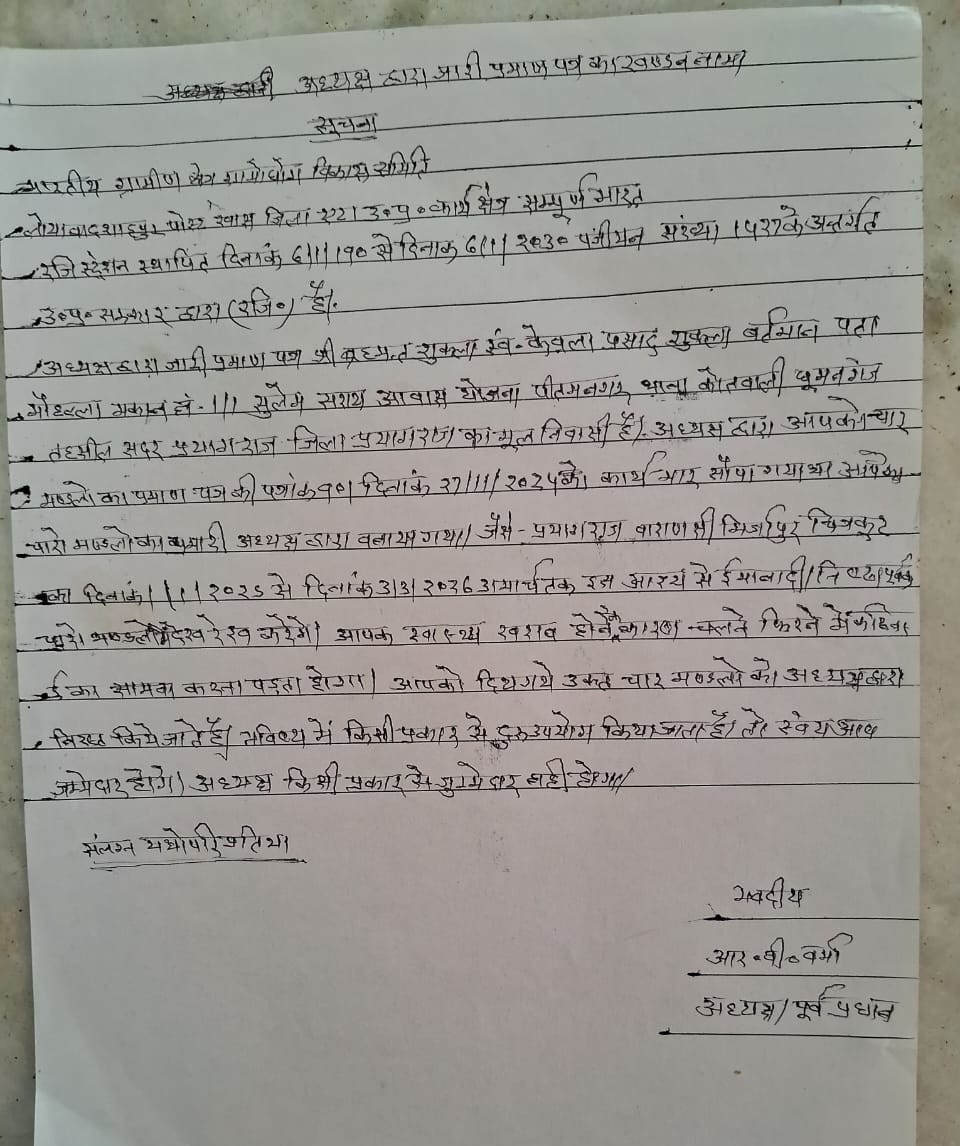 अध्यक्ष द्वारा जारी प्रमाण पत्र का खण्डन नामा
सूचना
भारतीय ग्रामीण क्षेत्र ग्रामोद्योग विकास समिति
पोस्ट खास जिला एटा उ०प्र० कार्य क्षेत्र सम्पूर्ण भारत
रजिस्ट्रेशन स्थापित दिनांक ६/१/१९० से दिनाक ६/१/२०३० पंजीयन संख्या १५२७ के अन्तर्गत
उ०प्र० सरकार द्वारा (रजि०) है।
अध्यक्ष द्वारा जारी प्रमाण पत्र श्री शुक्ला स्व० केवला प्रसाद शुक्ला वर्तमान पता
मोहल्ला मकान नं - १११ सुलेम सराय आवास योजना प्रीतमनगर थाना कोतवाली धूमनगंज
तहसील सदर प्रयागराज जिला प्रयागराज का मूल निवासी है। अध्यक्ष द्वारा आपको चार
मण्डलो का प्रमाण पत्र की पत्रांक १०१ दिनांक २७/११/२०२५ को कार्य भार सौंपा गया था
चारो मण्डलो का प्रभारी अध्यक्ष द्वारा बनाया गया। जैसे - प्रयागराज वाराणसी मिर्जापुर चित्रकुट
का दिनांक १/१/२०२६ से दिनांक ३/३/२०२६ मार्च तक इस आश्य से ईमानादी/निष्ठापूर्वक
देखरेख करेंगे। आपक स्वास्थ्य खराब होने के कारण चलने फिरने में कठिना
ई का सामना करना पड़ता होगा। आपको दिये गये उक्त चार मण्डलो को अध्यक्ष द्वारा
निरस्त किये जाते है। भविष्य में किसी प्रकार से दुरुउपयोग किया जाता है। तो स्वंय आप
जुम्मेदार होंगे। अध्यक्ष किसी प्रकार से जुम्मेदार नही होगा।
संलग्न यथोपरि प्रतिया
भवदीय
आर०बी०वर्मा
अध्यक्ष/पूर्व प्रधान